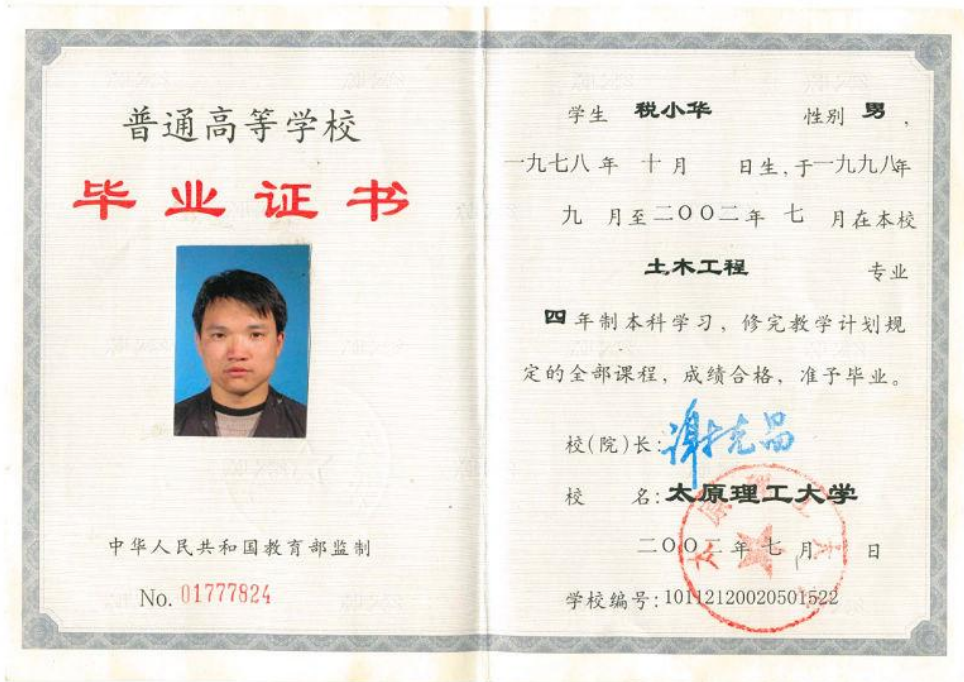 普通高等学校
毕业证书
中华人民共和国教育部监制
No. 01777824
学生 税小华 性别 男,
一九七八年 十月 日生,于一九九八年
九 月至二〇〇二年 七 月在本校
土木工程 专业
四年制本科学习,修完教学计划规
定的全部课程,成绩合格,准予毕业。
校(院)长:谢克昌
校 名:太原理工大学
二〇〇二年七月 日
学校编号:10112120020501522
太原理工大学